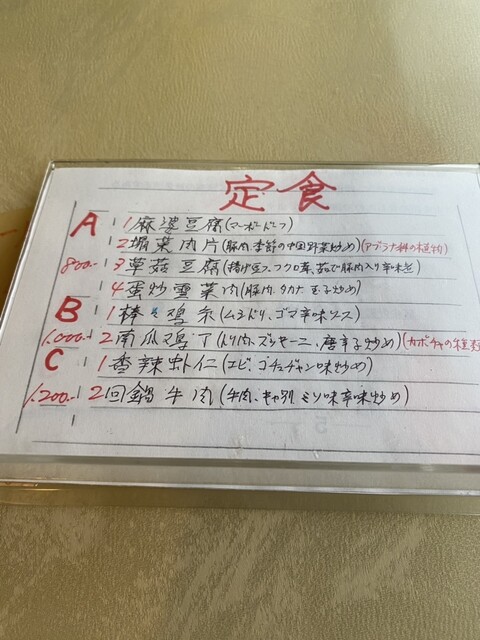 定食
A 1 麻婆豆腐(マーボードーフ)
2 塌菜肉片(豚肉、季節の中国野菜炒め)(アブラナ科の植物)
800.- 3 草菇豆腐(揚げ豆フ、フクロ茸、茹で豚肉入り辛味)
4 蛋炒雪菜肉(豚肉、タカナ、玉子炒め)
B 1 棒々鶏糸(ムシドリ、ゴマ辛味ソース)
1.000.- 2 南瓜鶏丁(トリ肉、ズッキーニ、唐辛子炒め)(カボチャの種類
C 1 香辣虾仁(エビ、コチュヂャン味炒め)
1.200.- 2 回鍋牛肉(牛肉、キャベツ、ミソ味辛味炒め)